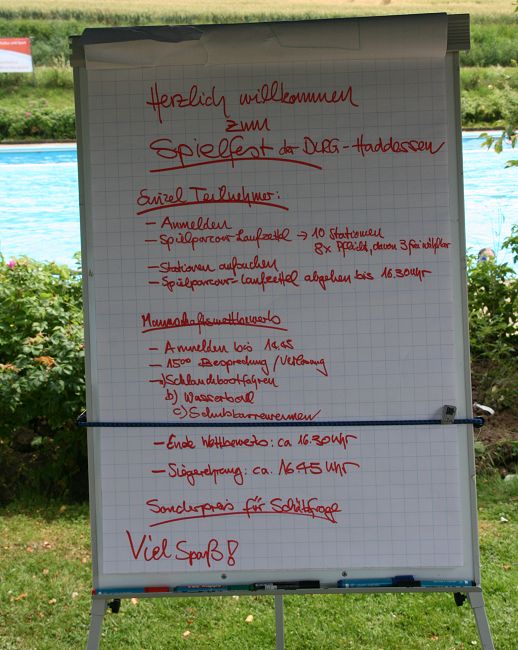 Herzlich willkommen
zum
Spielfest der DLRG - Haddessen
Einzel Teilnehmer:
- Anmelden
- Spielparcour Laufzettel → 10 Stationen
8x Pflicht, davon 3 frei wählbar
- Stationen aufsuchen
- Spielparcour- Laufzettel abgeben bis 16.30 Uhr
Mannschaftswettbewerb
- Anmelden bis
- 15⁰⁰ Besprechung / Verlosung
- a) Schlauchbootfahren
b) Wasserball
c) Schubkarrerennen
- Ende Wettbewerb: ca 16.30 Uhr
- Siegerehrung: ca. 16 45 Uhr
Sonderpreis für Schätzfrage
Viel Spaß!